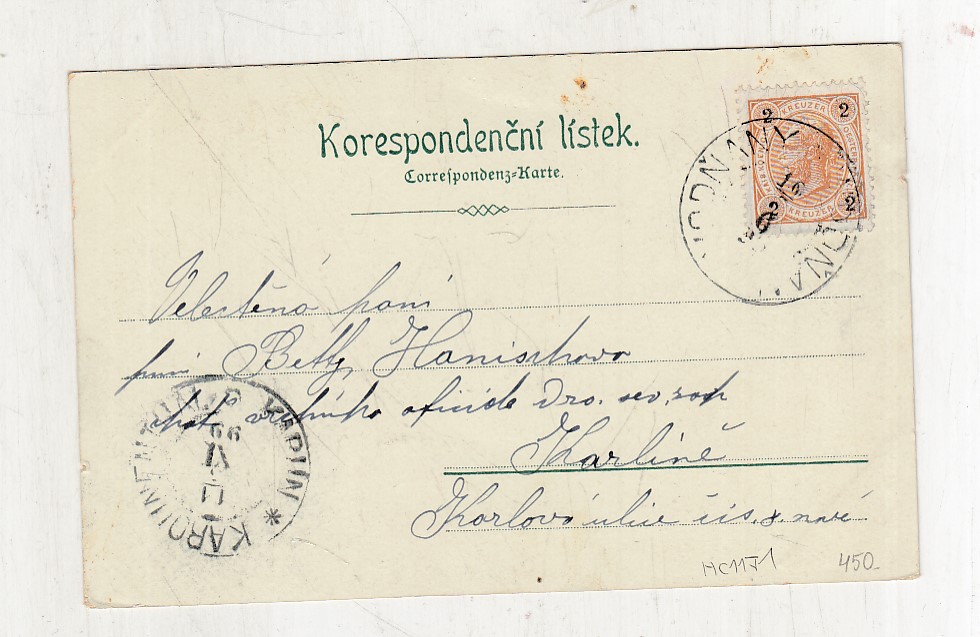 Korespondenční lístek.
Correspondenz-Karte.
2 KREUZER 2
2 KREUZER 2
VODŇANY
16
6
99
Velectěná paní
paní Betty Hanischova
choť vrchního oficiála
Karlíně
Karlova ulice čís. 8. nové
KAROLINENTHAL
KARLIN *
99
VI
HC11J1
450-